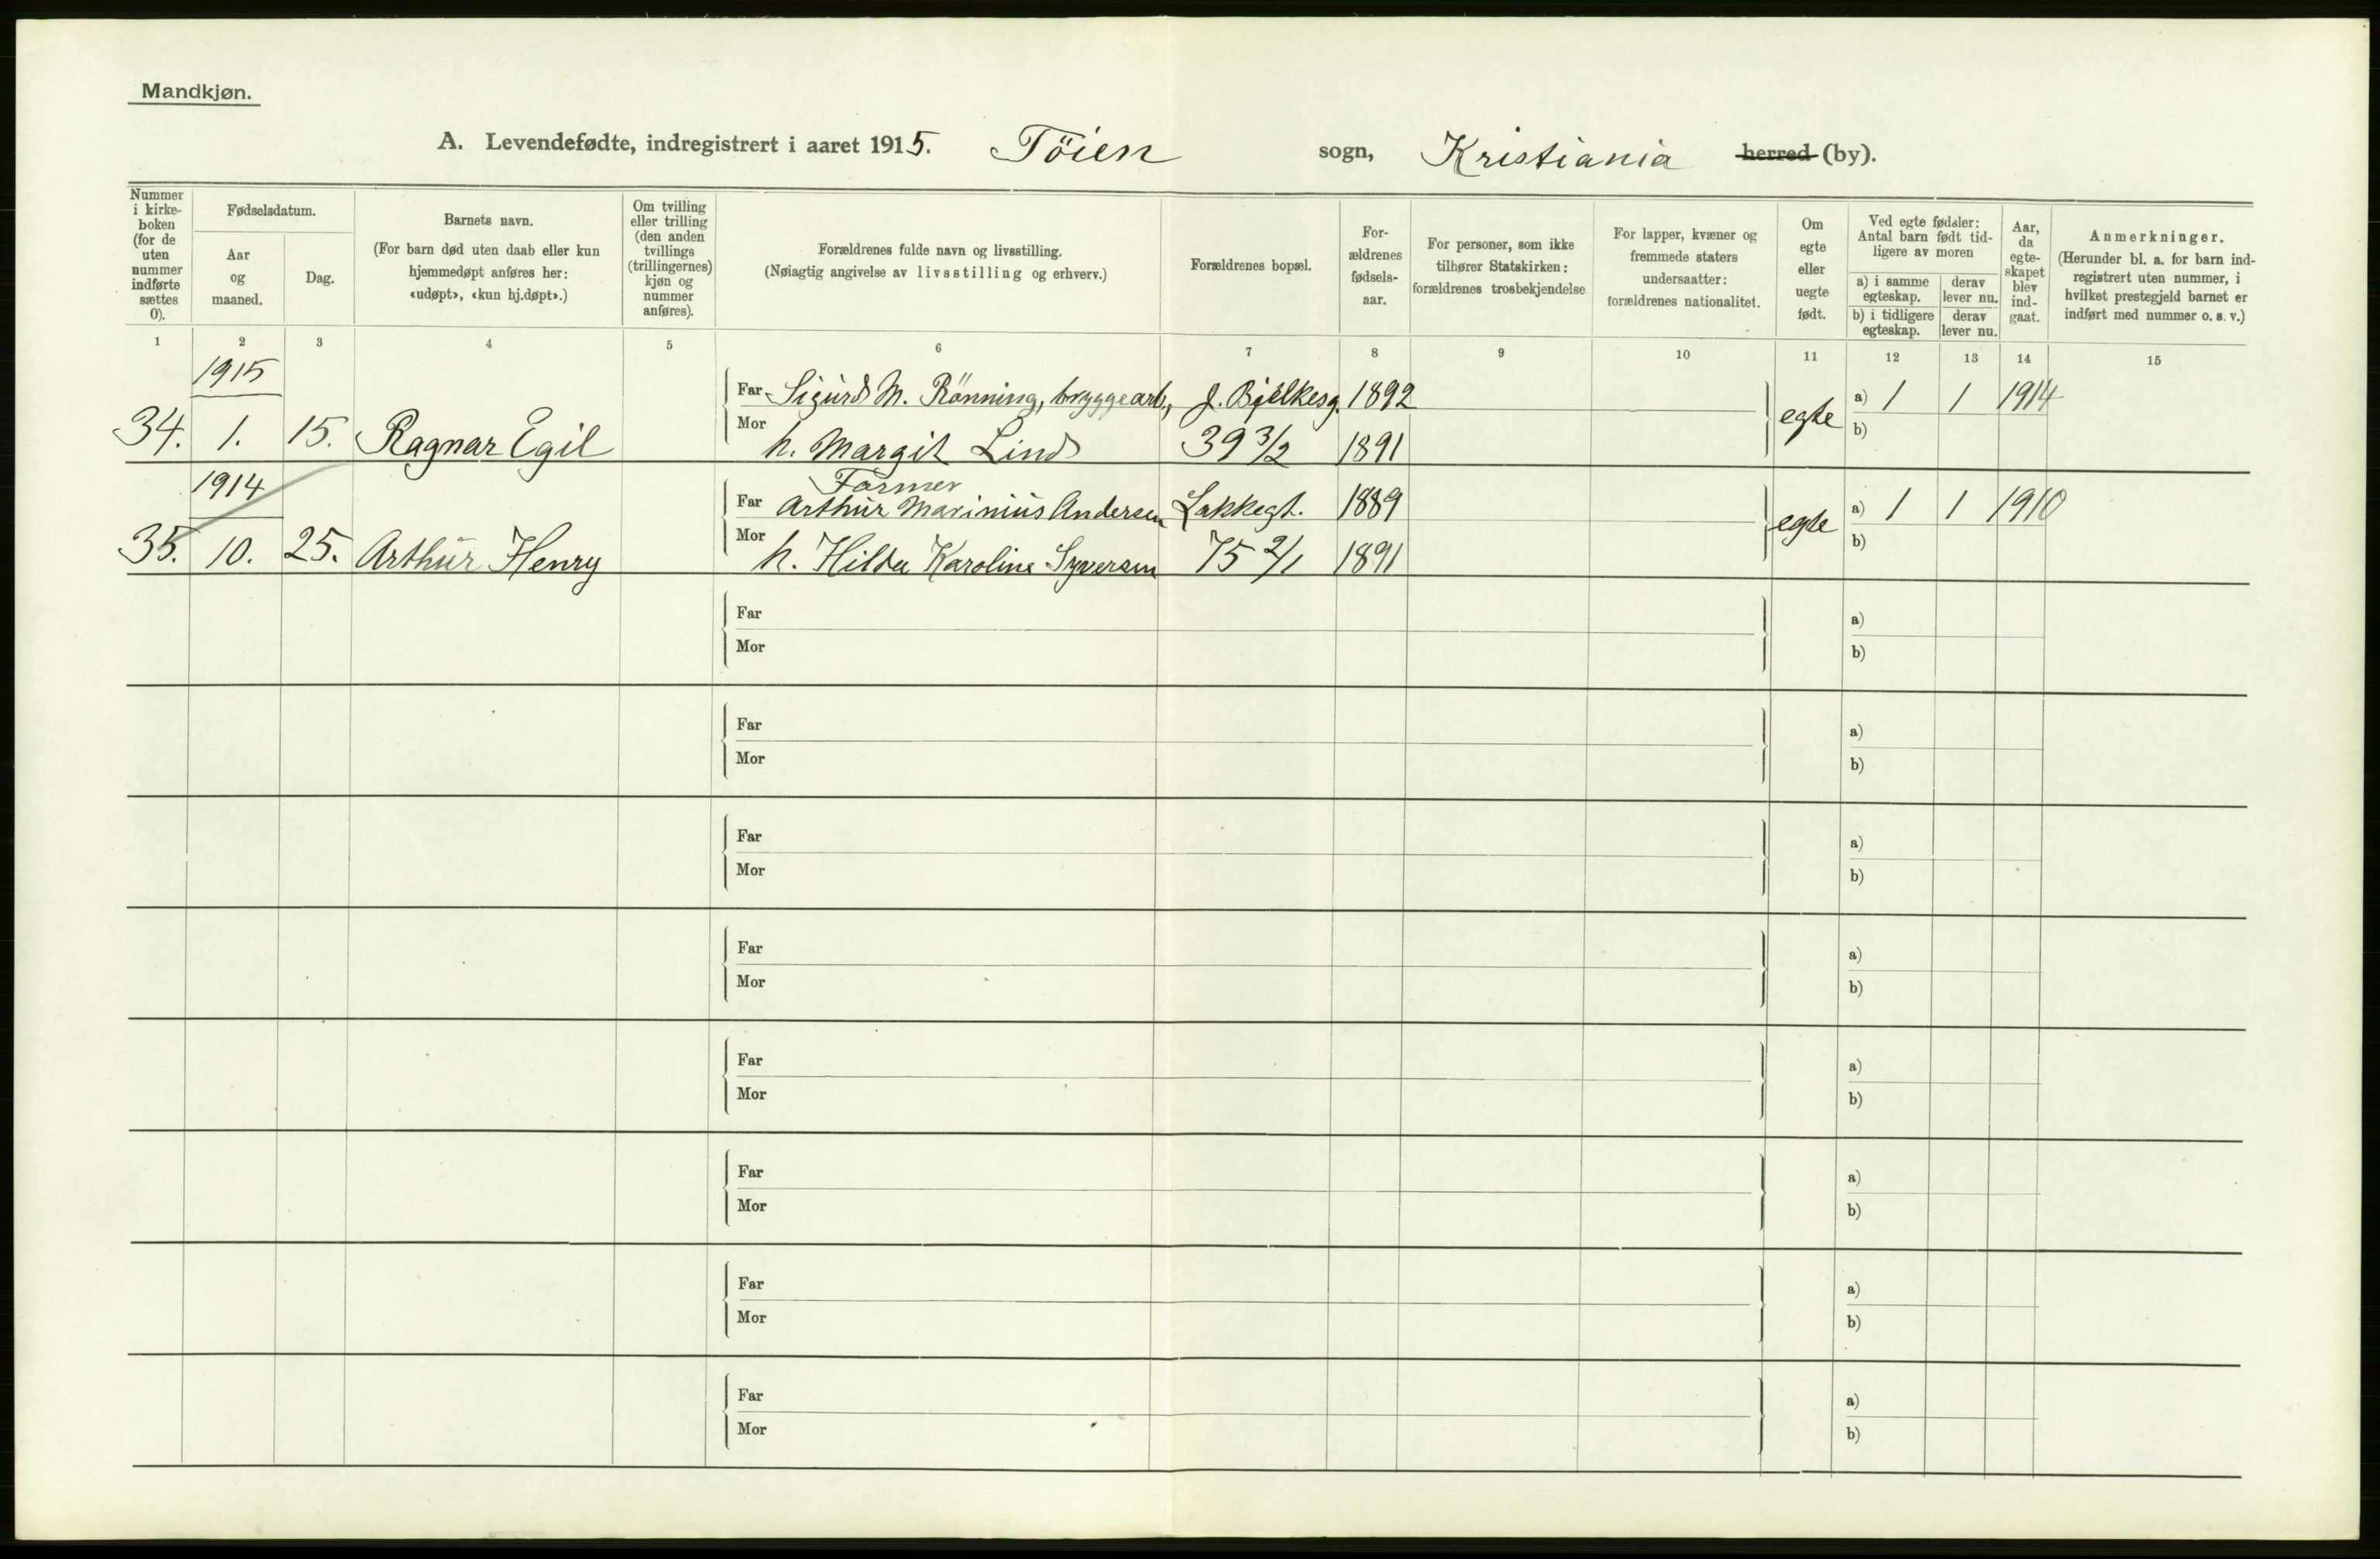 Mandkjøn.
A. Levendefødte, indregistrert i aaret 1915. Töien sogn, Kristiania herred (by).
Nummer i kirke-boken (for de uten nummer indførte sættes 0).
Fødselsdatum.
Aar og maaned.
Dag.
Barnets navn.
(For barn død uten daab eller kun hjemmedøpt anføres her: «udøpt», «kun hj.døpt».)
Om tvilling eller trilling (den anden tvillings (trillingernes) kjøn og nummer anføres).
Forældrenes fulde navn og livsstilling.
(Nøiagtig angivelse av livsstilling og erhverv.)
Forældrenes bopæl.
For-ældrenes fødsels-aar.
For personer, som ikke tilhører Statskirken: forældrenes trosbekjendelse
For lapper, kvæner og fremmede staters undersaatter: forældrenes nationalitet.
Om egte eller uegte født.
Ved egte fødsler: Antal barn født tid-ligere av moren
a) i samme egteskap.
derav lever nu.
b) i tidligere egteskap.
derav lever nu.
Aar, da egte-skapet blev ind-gaat.
Anmerkninger.
(Herunder bl. a. for barn ind-registrert uten nummer, i hvilket prestegjeld barnet er indført med nummer o. s. v.)
1 2 3 4 5 6 7 8 9 10 11 12 13 14 15
1915
Far Sigurd M. Rönning, bryggearb., J. Bjelkesg. 1892 a) 1 1 1914
34. 1. 15. Ragnar Egil Mor h. Margit Lind 39 3/2 1891 egte b)
1914 Farmer
Far Arthur Marinius Andersen Lakkegt. 1889 a) 1 1 1910
35. 10. 25. Arthur Henry Mor h. Hilda Karoline Syversen 75 2/1 1891 egte b)
Far a)
Mor b)
Far a)
Mor b)
Far a)
Mor b)
Far a)
Mor b)
Far a)
Mor b)
Far a)
Mor b)
Far a)
Mor b)
Far a)
Mor b)